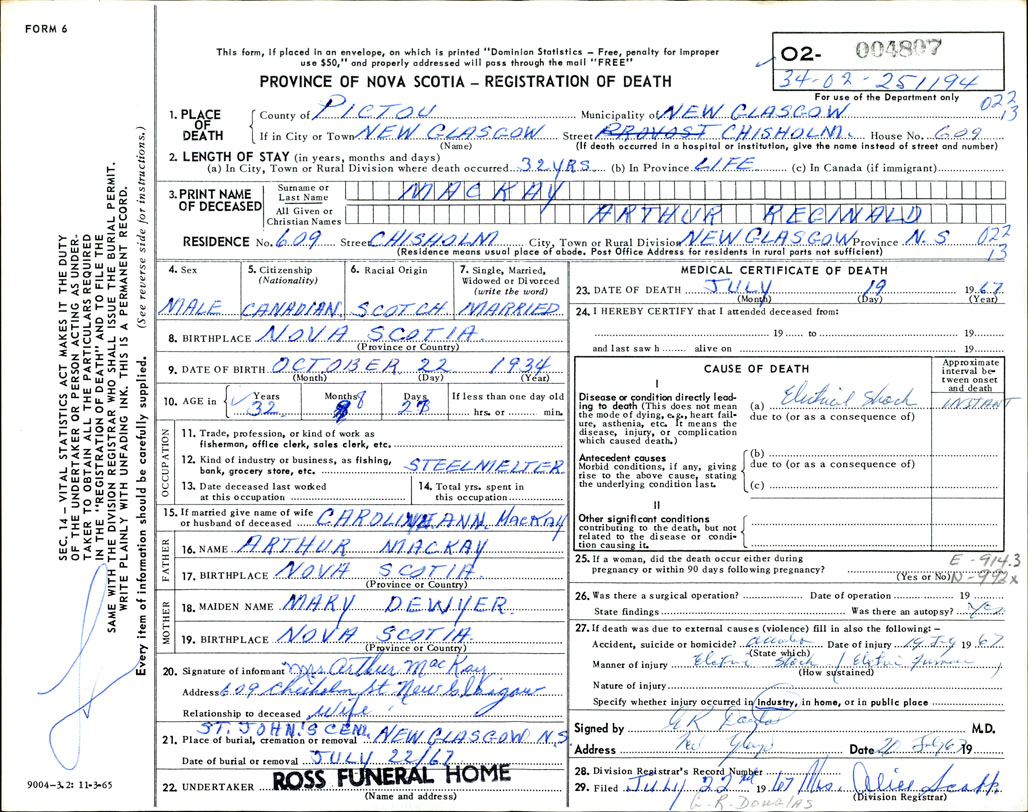 FORM 6
This form, if placed in an envelope, on which is printed "Dominion Statistics – Free, penalty for improper
use $50," and properly addressed will pass through the mail "FREE"
PROVINCE OF NOVA SCOTIA – REGISTRATION OF DEATH
O2- 004807
34-02-251194
For use of the Department only
022
13
1. PLACE OF DEATH
County of PICTOU Municipality of NEW GLASGOW
If in City or Town NEW GLASGOW Street PROVOST CHISHOLM House No. 609
(Name) (If death occurred in a hospital or institution, give the name instead of street and number)
2. LENGTH OF STAY (in years, months and days)
(a) In City, Town or Rural Division where death occurred 32 YRS. (b) In Province LIFE (c) In Canada (if immigrant)
3. PRINT NAME OF DECEASED
Surname or Last Name MACKAY
All Given or Christian Names ARTHUR REGINALD
RESIDENCE No. 609 Street CHISHOLM City, Town or Rural Division NEW GLASGOW Province N.S 022
13
(Residence means usual place of abode. Post Office Address for residents in rural parts not sufficient)
4. Sex 5. Citizenship (Nationality) 6. Racial Origin 7. Single, Married, Widowed or Divorced (write the word)
MALE CANADIAN SCOTCH MARRIED
8. BIRTHPLACE NOVA SCOTIA
(Province or Country)
9. DATE OF BIRTH OCTOBER 22 1934
(Month) (Day) (Year)
10. AGE in Years Months Days If less than one day old
32 8 27 hrs. or min.
OCCUPATION
11. Trade, profession, or kind of work as
fisherman, office clerk, sales clerk, etc.
12. Kind of industry or business, as fishing,
bank, grocery store, etc. STEELMELTER
13. Date deceased last worked
at this occupation
14. Total yrs. spent in
this occupation
15. If married give name of wife
or husband of deceased CAROLINE ANN MACKAY
FATHER
16. NAME ARTHUR MACKAY
17. BIRTHPLACE NOVA SCOTIA
(Province or Country)
MOTHER
18. MAIDEN NAME MARY DEWYER
19. BIRTHPLACE NOVA SCOTIA
(Province or Country)
20. Signature of informant Mrs Arthur MacKay
Address 609 Chisholm St New Glasgow
Relationship to deceased Wife
ST. JOHN'S CEM.
21. Place of burial, cremation or removal NEW GLASGOW N.S
Date of burial or removal JULY 22/67
22. UNDERTAKER ROSS FUNERAL HOME
(Name and address)
MEDICAL CERTIFICATE OF DEATH
23. DATE OF DEATH JULY 19 1967
(Month) (Day) (Year)
24. I HEREBY CERTIFY that I attended deceased from:
19 to 19
and last saw h alive on 19
CAUSE OF DEATH
Approximate interval between onset and death
I
Disease or condition directly leading to death (This does not mean the mode of dying, e.g., heart failure, asthenia, etc. It means the disease, injury, or complication which caused death.)
(a) Electrical Shock INSTANT
due to (or as a consequence of)
Antecedent causes
Morbid conditions, if any, giving rise to the above cause, stating the underlying condition last.
(b)
due to (or as a consequence of)
(c)
II
Other significant conditions
contributing to the death, but not related to the disease or condition causing it.
25. If a woman, did the death occur either during
pregnancy or within 90 days following pregnancy?
(Yes or No)
E-914.3
N-992x
26. Was there a surgical operation? Date of operation 19
State findings Was there an autopsy? yes
27. If death was due to external causes (violence) fill in also the following: –
Accident, suicide or homicide? Date of injury 19 July 1967
(State which)
Manner of injury Electric Shock / Electric furnace
(How sustained)
Nature of injury
Specify whether injury occurred in industry, in home, or in public place
Signed by M.D.
Address New Glasgow Date 20 July 67 19
28. Division Registrar's Record Number
29. Filed July 22nd 1967 Mrs. Alice Scott
(Division Registrar)
G.R. DOUGLAS
SEC. 14 – VITAL STATISTICS ACT MAKES IT THE DUTY
OF THE UNDERTAKER OR PERSON ACTING AS UNDER-
TAKER TO OBTAIN ALL THE PARTICULARS REQUIRED
IN THE "REGISTRATION OF DEATH" AND TO FILE THE
SAME WITH THE DIVISION REGISTRAR WHO SHALL ISSUE THE BURIAL PERMIT.
WRITE PLAINLY WITH UNFADING INK. THIS IS A PERMANENT RECORD.
Every item of information should be carefully supplied. (See reverse side for instructions.)
9004-3.2: 11-3-65